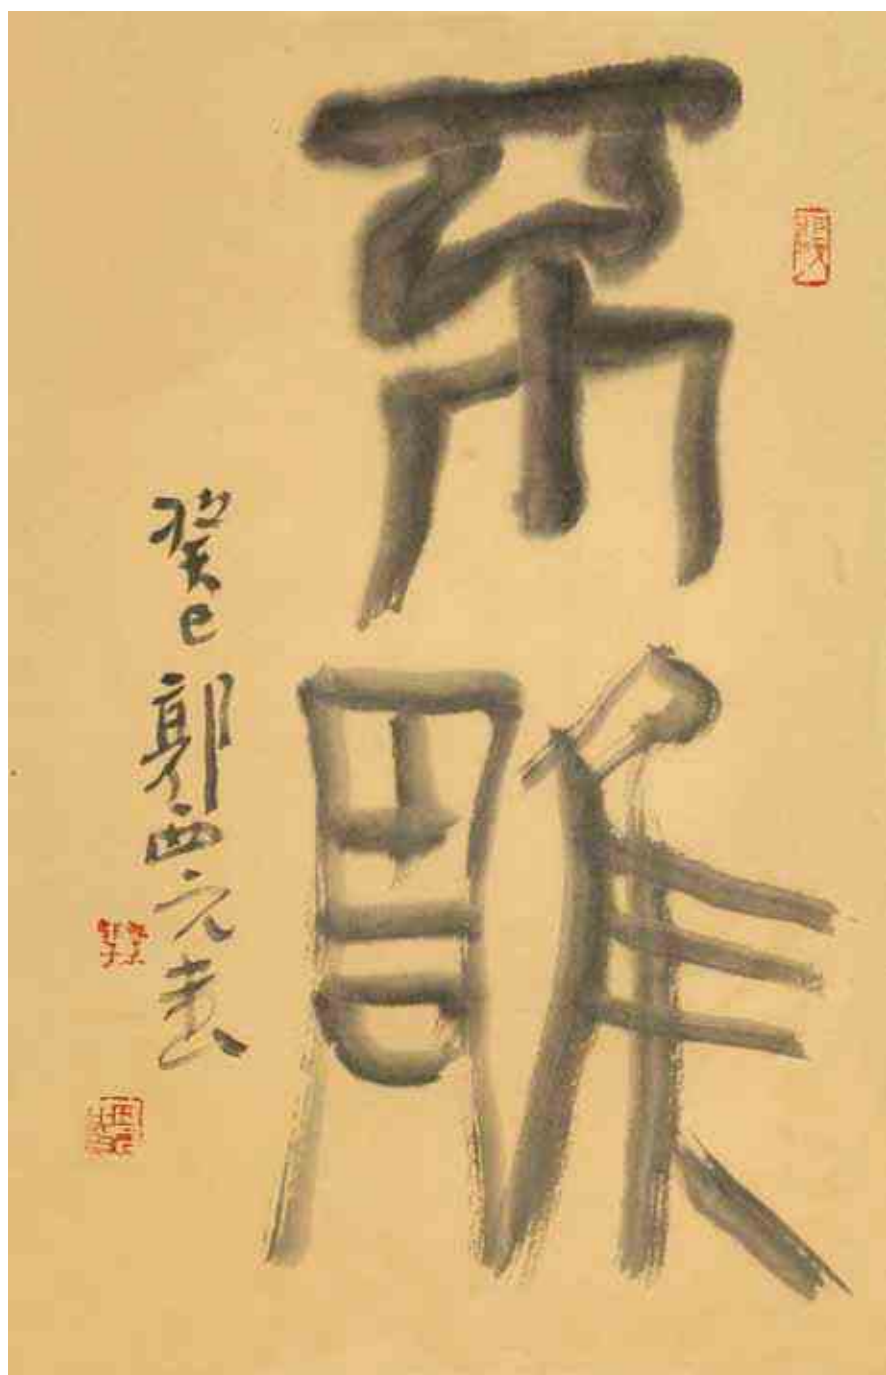 不雕
癸巳 郭西元